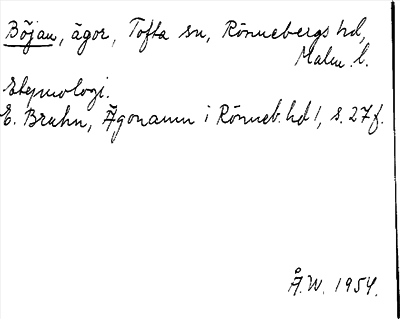 Böjan, ägor, Tofta sn, Rönnebergs hd,
Malm. l.
Etymologi.
E. Bruhn, Ägonamn i Rönneb. hd 1, s. 27 f.
Å. W. 1954.